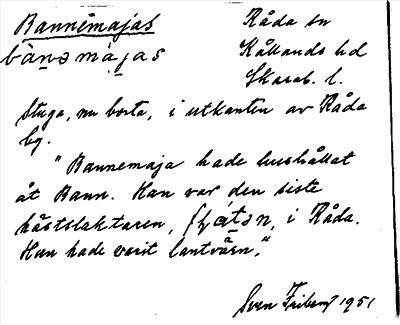 Bannemajas
Råda sn
Kållands hd
Skarab. l.
bànəmàjas
Stuga, nu borta, i utkanten av Råda
by.
"Bannemaja hade hushållat
åt Bann. Han var den siste
hästslaktaren, i Råda.
Han hade varit lantvärn."
Sven Friberg 1951